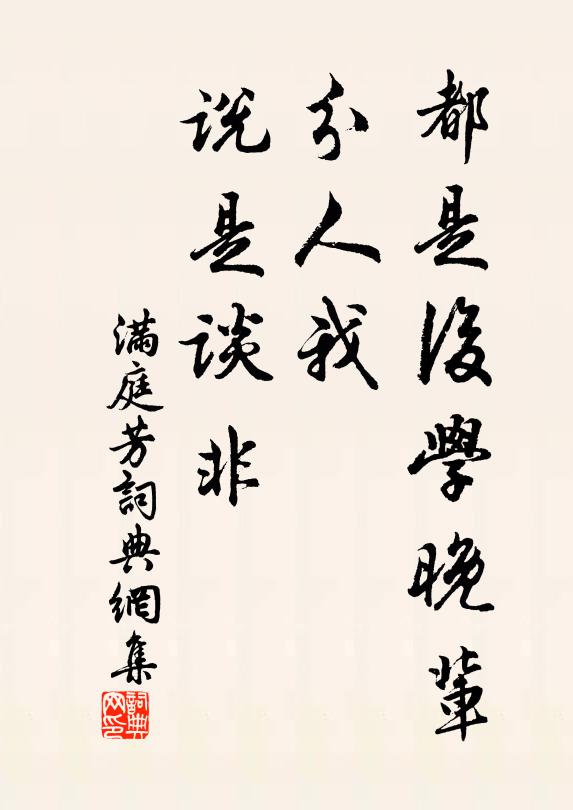 都是後學晚輩
分人我
说是談非
滿庭芳詞典網集
詞典网印